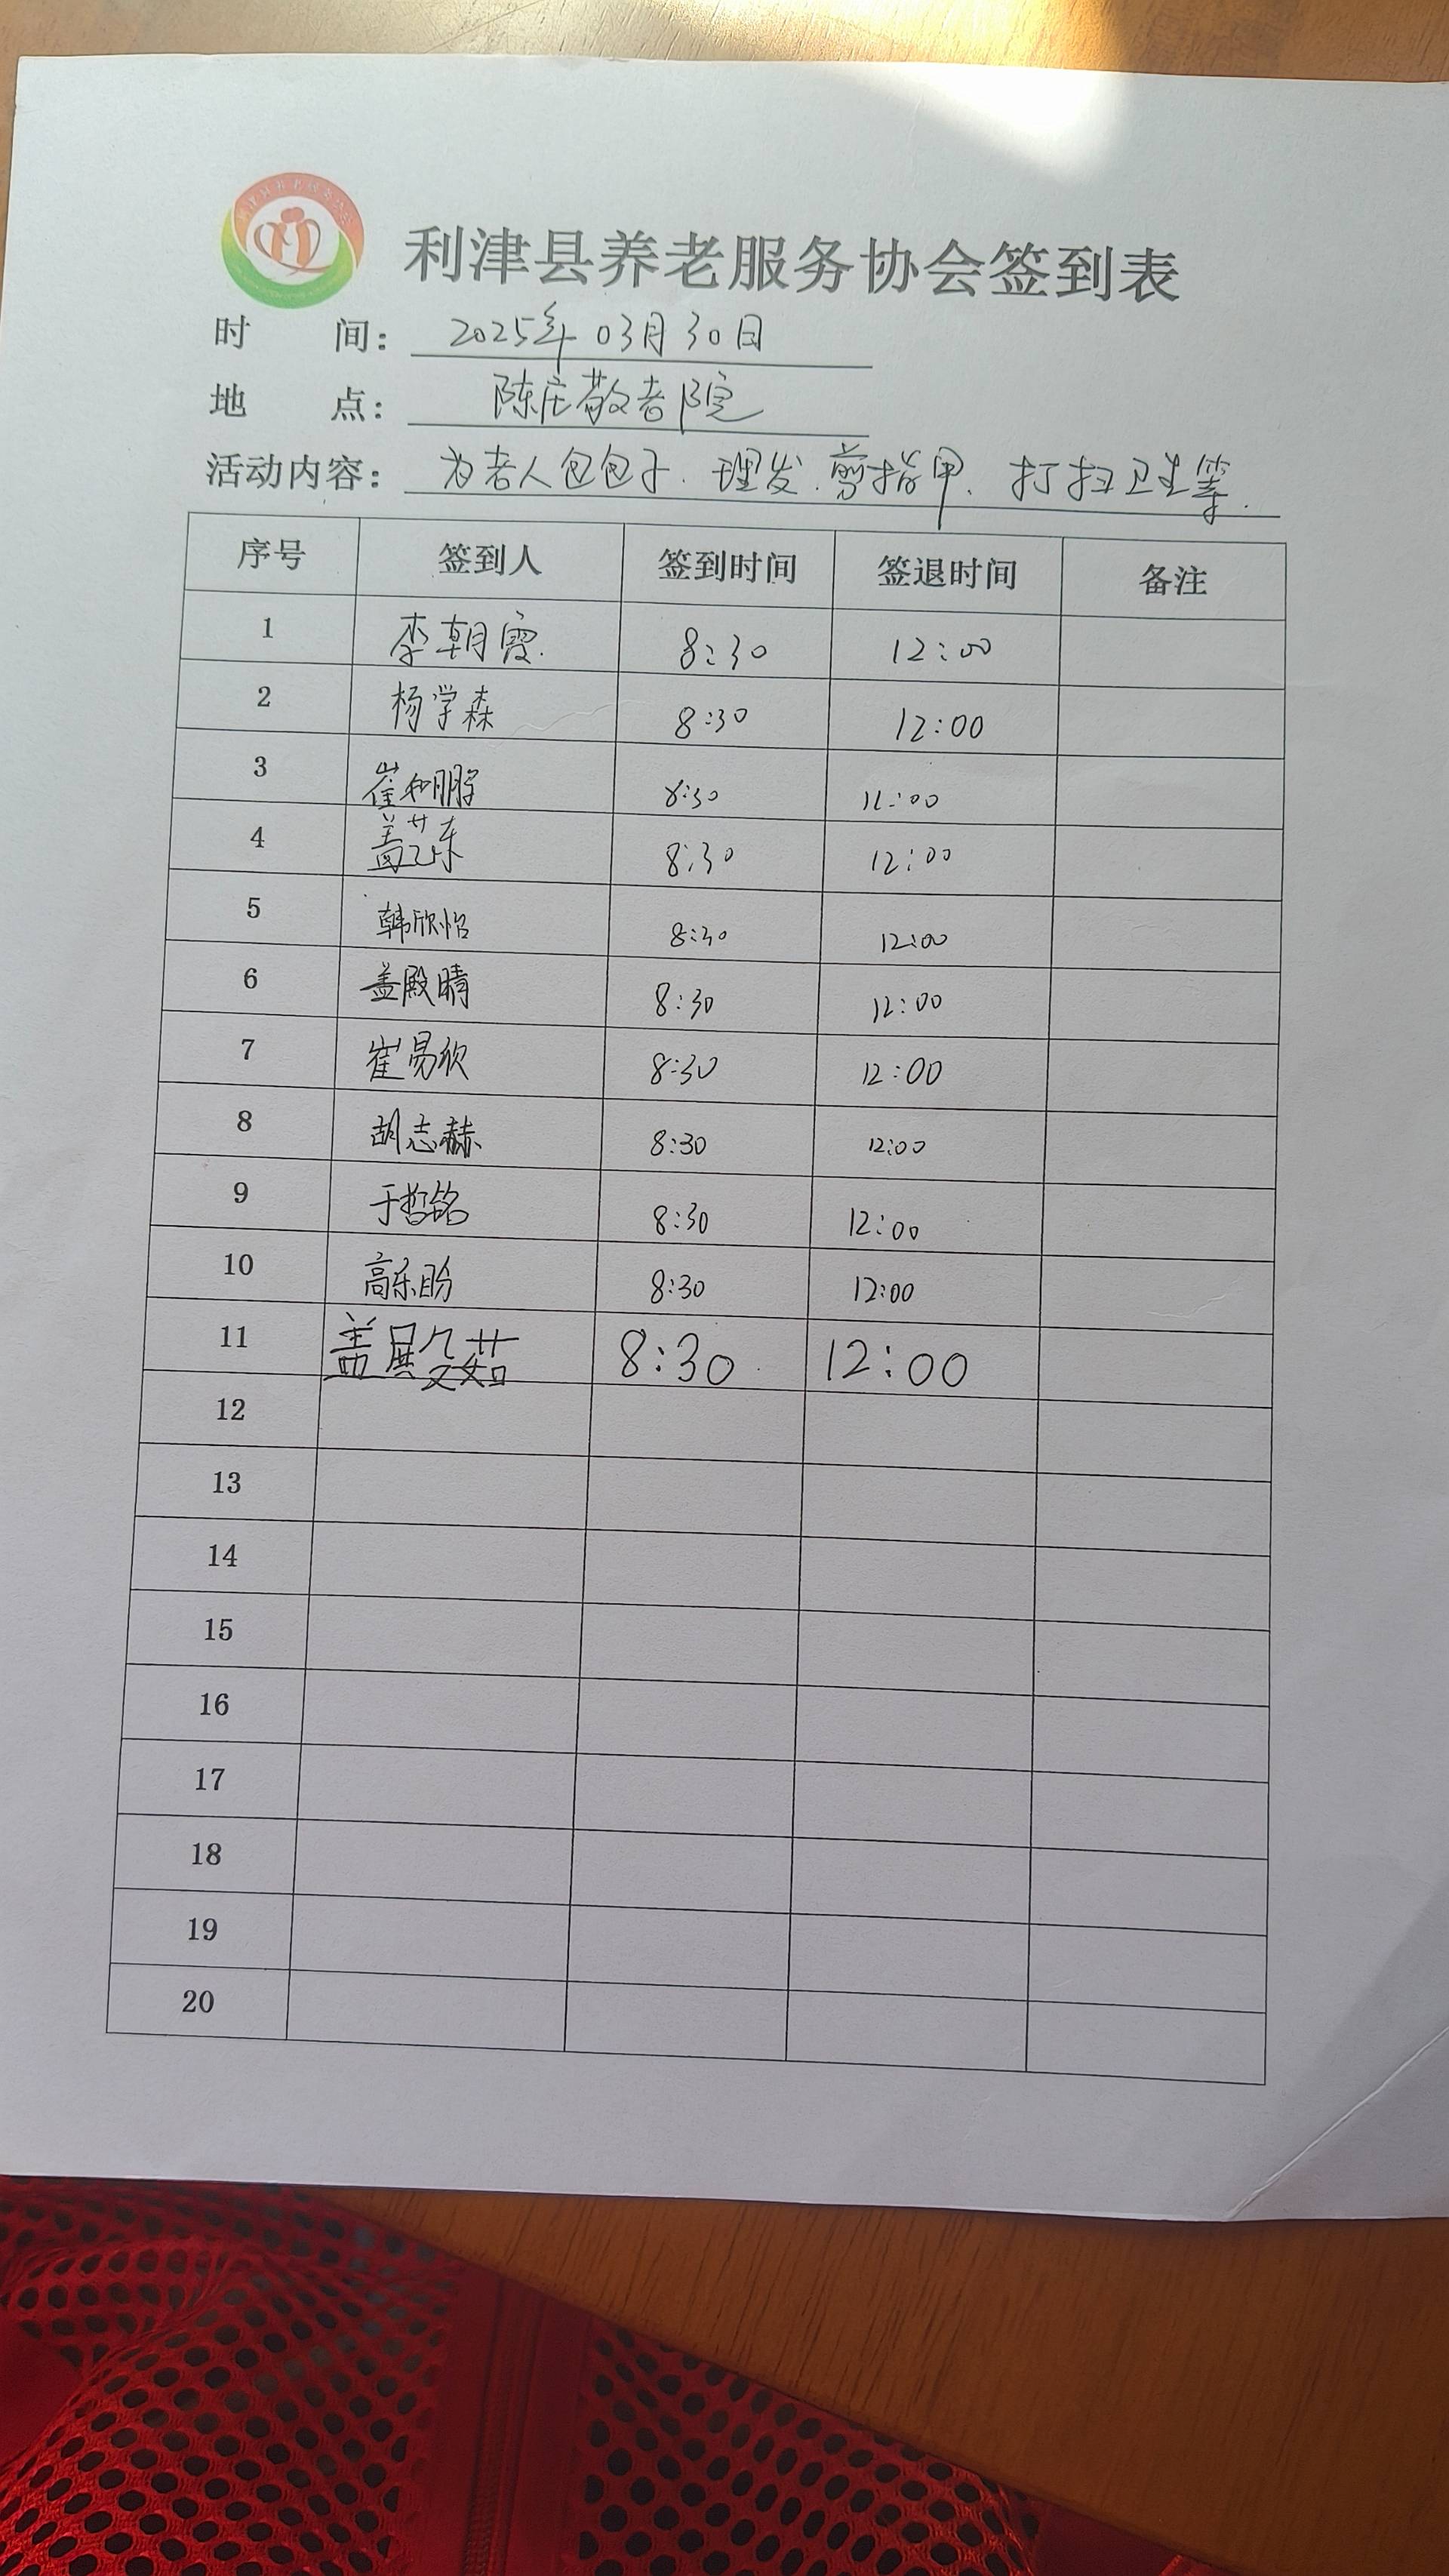 利津县养老服务协会签到表
时 间： 2025年03月30日
地 点： 陈庄敬老院
活动内容： 为老人包包子、理发、剪指甲、打扫卫生等.
序号 签到人 签到时间 签退时间 备注
1 李朝霞 8:30 12:00
2 杨学森 8:30 12:00
3 崔 8:30 11:00
4 盖艺东 8:30 12:00
5 韩欣怡 8:30 12:00
6 盖殿晴 8:30 12:00
7 崔易欣 8:30 12:00
8 胡志赫 8:30 12:00
9 于哲铭 8:30 12:00
10 高乐盼 8:30 12:00
11 盖殿茹 8:30 12:00
12
13
14
15
16
17
18
19
20